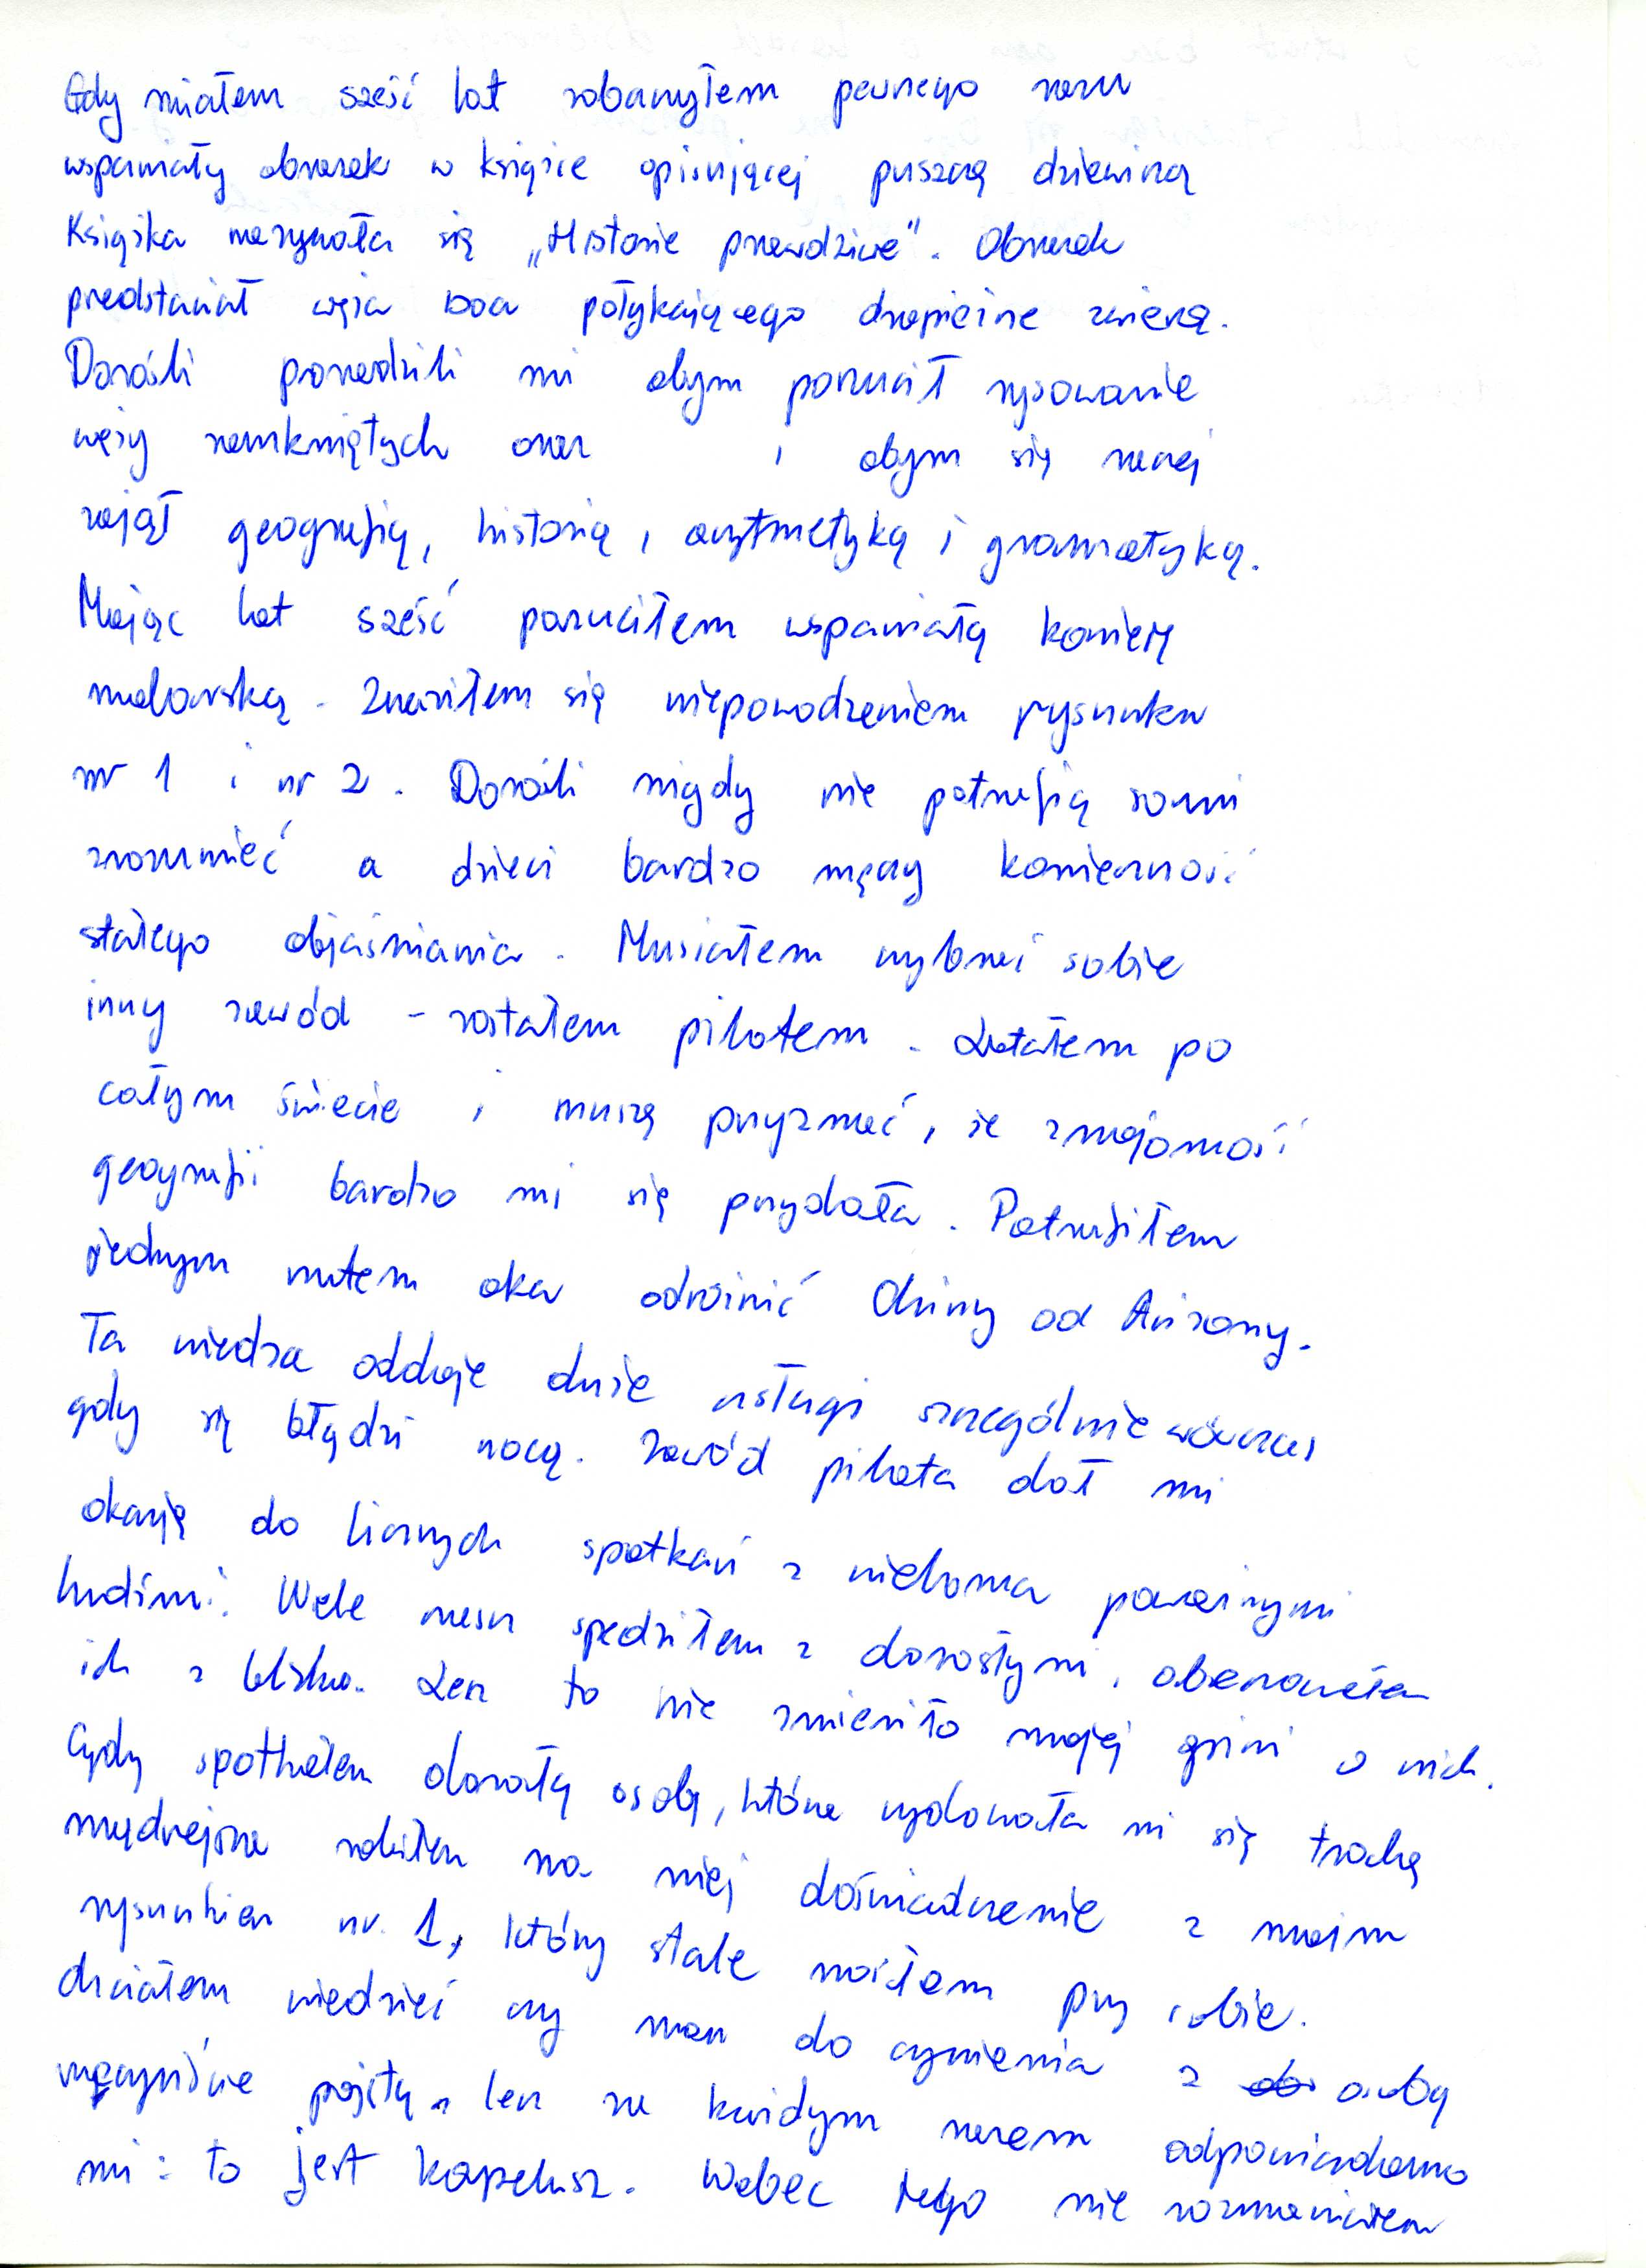 Gdy miałem sześć lat zobaczyłem pewnego razu
wspaniały obrazek w książce opisującej puszczę dziewiczą
Książka nazywała się „Historie prawdziwe". Obrazek
przedstawiał węża boa połykającego drapieżne zwierzę.
Dorośli poradzili mi abym porzucił rysowanie
węży zamkniętych oraz i abym się raczej
zajął geografią, historią, arytmetyką i gramatyką.
Mając lat sześć porzuciłem wspaniałą karierę
malarską. Zraziłem się niepowodzeniem rysunku
nr 1 i nr 2. Dorośli nigdy nie potrafią sami
zrozumieć a dzieci bardzo męczy konieczność
stałego objaśniania. Musiałem wybrać sobie
inny zawód - zostałem pilotem. Latałem po
całym świecie i muszę przyznać, że znajomość
geografii bardzo mi się przydała. Potrafiłem
jednym rzutem oka odróżnić Chiny od Arizony.
Ta wiedza oddaje duże usługi szczególnie wówczas
gdy się błądzi nocą. Zawód pilota dał mi
okazję do licznych spotkań z wieloma poważnymi
ludźmi. Wiele czasu spędziłem z dorosłymi, obserwowałem
ich z bliska. Lecz to nie zmieniło mojej opinii o nich.
Gdy spotkałem dorosłą osobę, która wydawała mi się trochę
mądrzejsza robiłem na niej doświadczenie z moim
rysunkiem nr. 1, który stale nosiłem przy sobie.
chciałem wiedzieć czy mam do czynienia z osobą
rzeczywiście pojętą, lecz za każdym razem odpowiadano
mi: to jest kapelusz. Wobec tego nie rozmawiałem